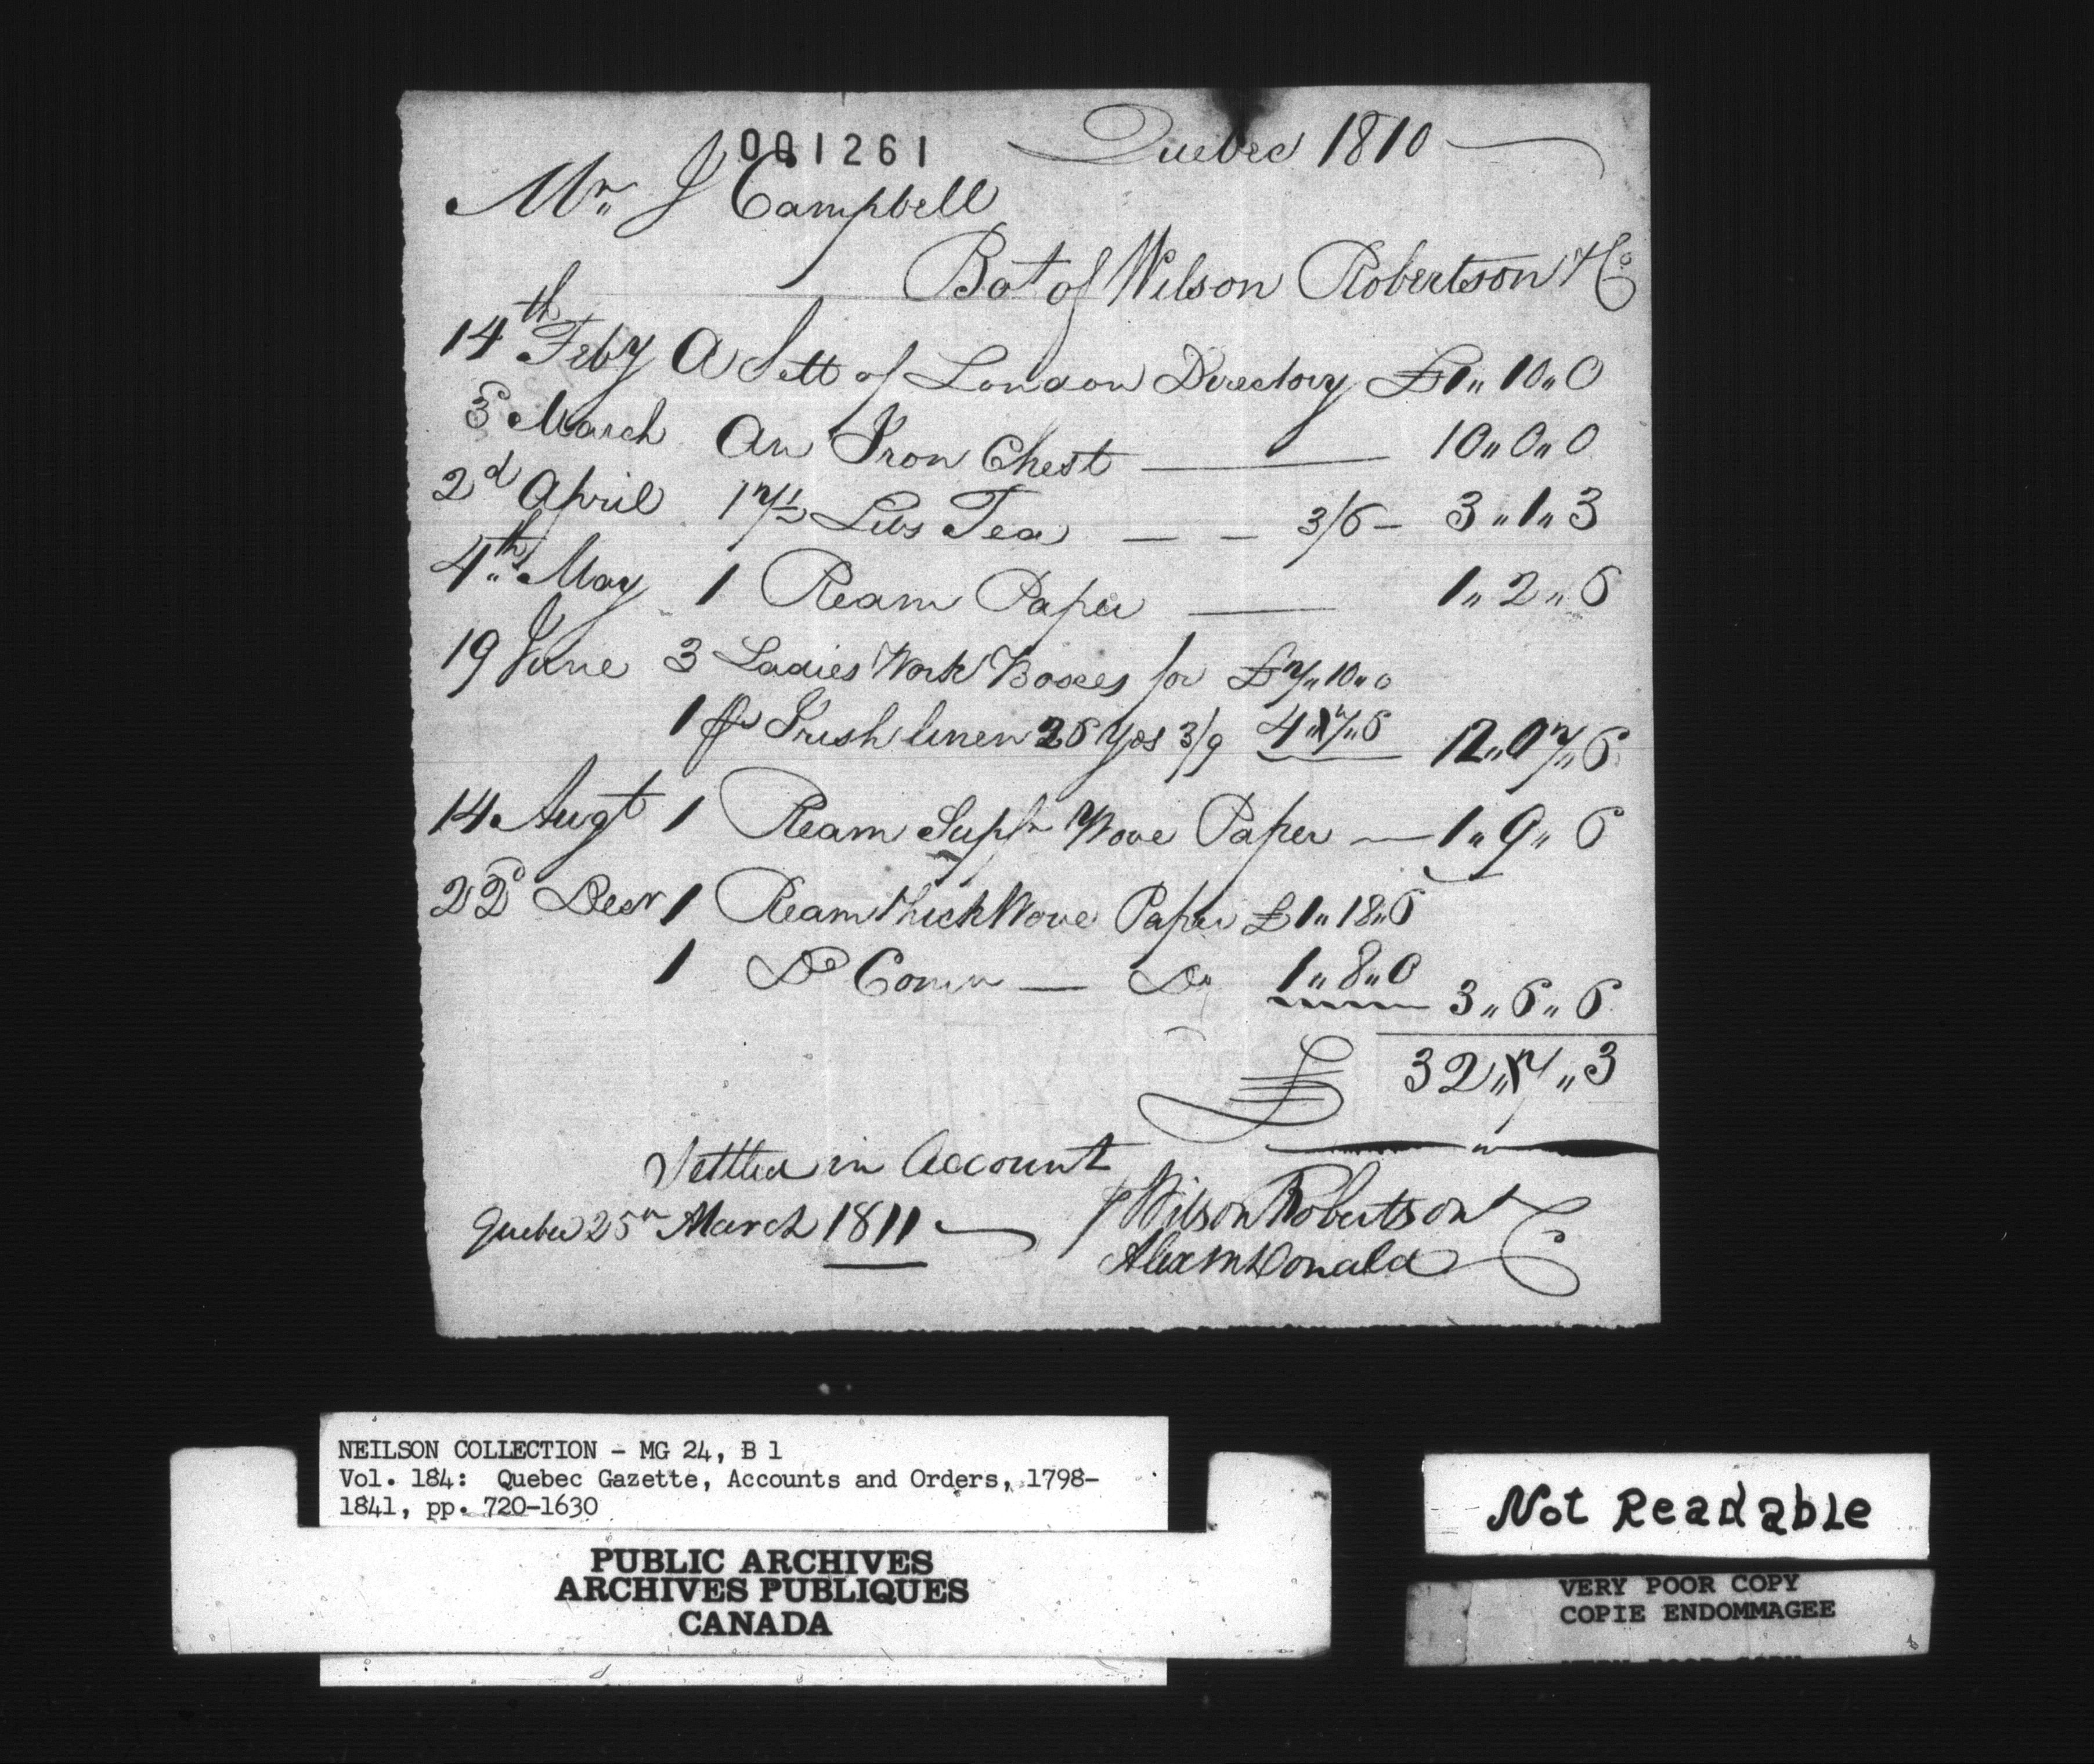 001261
Quebec 1810
Mr J Campbell
Bot of Wilson Robertson & Co
14th Feby A Sett of London Directory £1" 10" 0
3d March An Iron Chest 10" 0" 0
2d April 17½ Lbs Tea — — 3/6 — 3" 1" 3
4th May 1 Ream Paper — 1" 2" 6
19 June 3 Ladies Work Boxes for £7" 10" 0
1 ps Irish linen 26 Yds 3/9 4" 17" 6 12" 07" 6
14 Augt 1 Ream Supfn Wove Paper — 1" 9" 6
22d Decr 1 Ream thick Wove Paper £1" 18" 6
1 Do Comn — Do 1" 8" 0 3" 6" 6
£ 32" 17" 3
Settled in Account
Quebec 25th March 1811 — p Wilson Robertson & C
Alex McDonald
NEILSON COLLECTION - MG 24, B 1
Vol. 184: Quebec Gazette, Accounts and Orders, 1798-
1841, pp. 720-1630
PUBLIC ARCHIVES
ARCHIVES PUBLIQUES
CANADA
Not Readable
VERY POOR COPY
COPIE ENDOMMAGEE